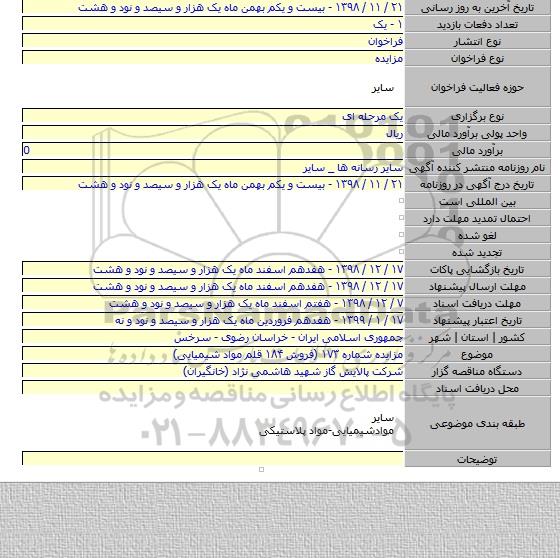 تاریخ آخرین به روز رسانی ۲۱ / ۱۱ / ۱۳۹۸ - بیست و یکم بهمن ماه یک هزار و سیصد و نود و هشت
تعداد دفعات بازدید ۱ - یک
نوع انتشار فراخوان
نوع فراخوان مزایده
حوزه فعالیت فراخوان سایر
نوع برگزاری یک مرحله ای
واحد پولی برآورد مالی ریال
برآورد مالی 0
نام روزنامه منتشر کننده آگهی سایر رسانه ها _ سایر
تاریخ درج آگهی در روزنامه ۲۱ / ۱۱ / ۱۳۹۸ - بیست و یکم بهمن ماه یک هزار و سیصد و نود و هشت
بین المللی است
احتمال تمدید مهلت دارد
لغو شده
تجدید شده
تاریخ بازگشایی پاکات ۱۷ / ۱۲ / ۱۳۹۸ - هفدهم اسفند ماه یک هزار و سیصد و نود و هشت
مهلت ارسال پیشنهاد ۱۷ / ۱۲ / ۱۳۹۸ - هفدهم اسفند ماه یک هزار و سیصد و نود و هشت
مهلت دریافت اسناد ۷ / ۱۲ / ۱۳۹۸ - هفتم اسفند ماه یک هزار و سیصد و نود و هشت
تاریخ اعتبار پیشنهاد ۱۷ / ۱ / ۱۳۹۹ - هفدهم فروردین ماه یک هزار و سیصد و نود و نه
کشور | استان | شهر جمهوری اسلامی ایران - خراسان رضوی - سرخس
موضوع مزایده شماره ۱۷۳ (فروش ۱۸۴ قلم مواد شیمیایی)
دستگاه مناقصه گزار شرکت پالایش گاز شهید هاشمی نژاد (خانگیران)
محل دریافت اسناد
طبقه بندی موضوعی سایر
موادشیمیایی-مواد پلاستیکی
توضیحات
پایگاه اطلاع رسانی مناقصه و مزایده
۰۲۱-۸۸۳۴۹۶۷۰-۵